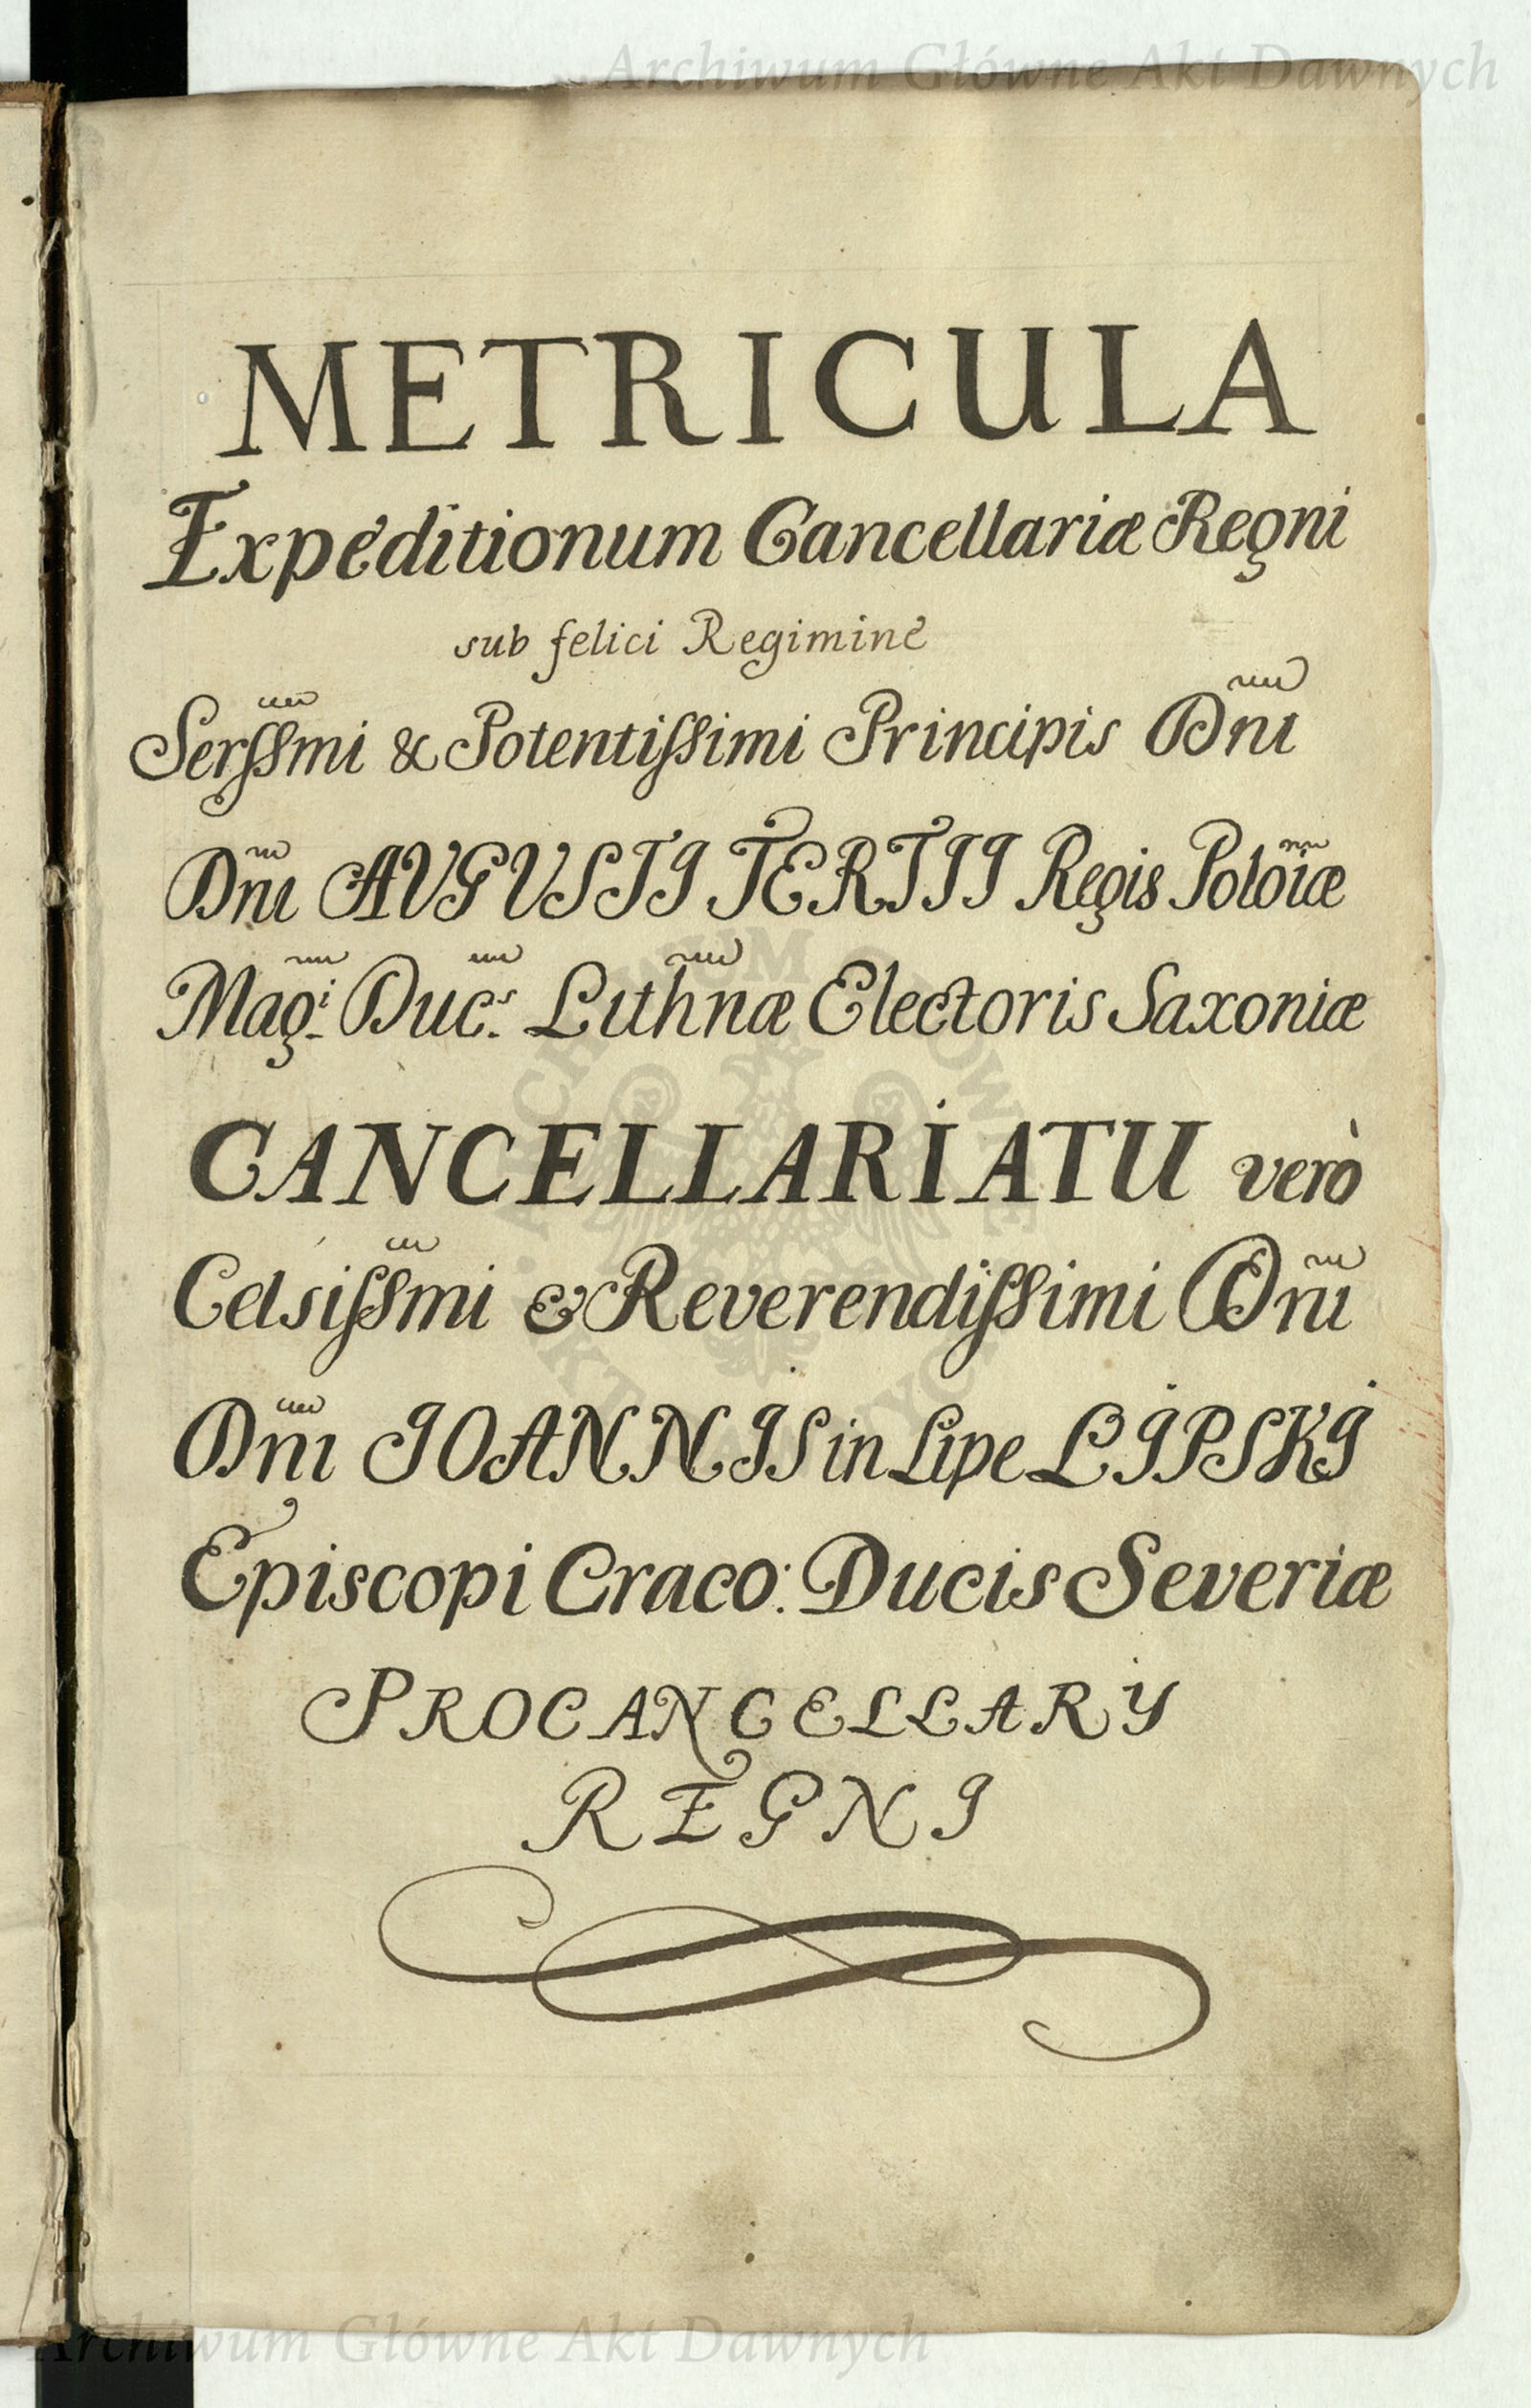 Archiwum Główne Akt Dawnych
METRICULA
Expeditionum Cancellariæ Regni
sub felici Regimine
Serſsmi & Potentiſsimi Principis Dni
Dni AUGUSTI TERTII Regis Poloiæ
Mag:i Duc:s Lithnæ Electoris Saxoniæ
CANCELLARIATU verò
Celsiſsmi & Reverendiſsimi Dni
Dni IOANNIS in Lipe LIPSKI
Episcopi Craco: Ducis Severiæ
PROCANCELLARY
REGNI
Archiwum Główne Akt Dawnych